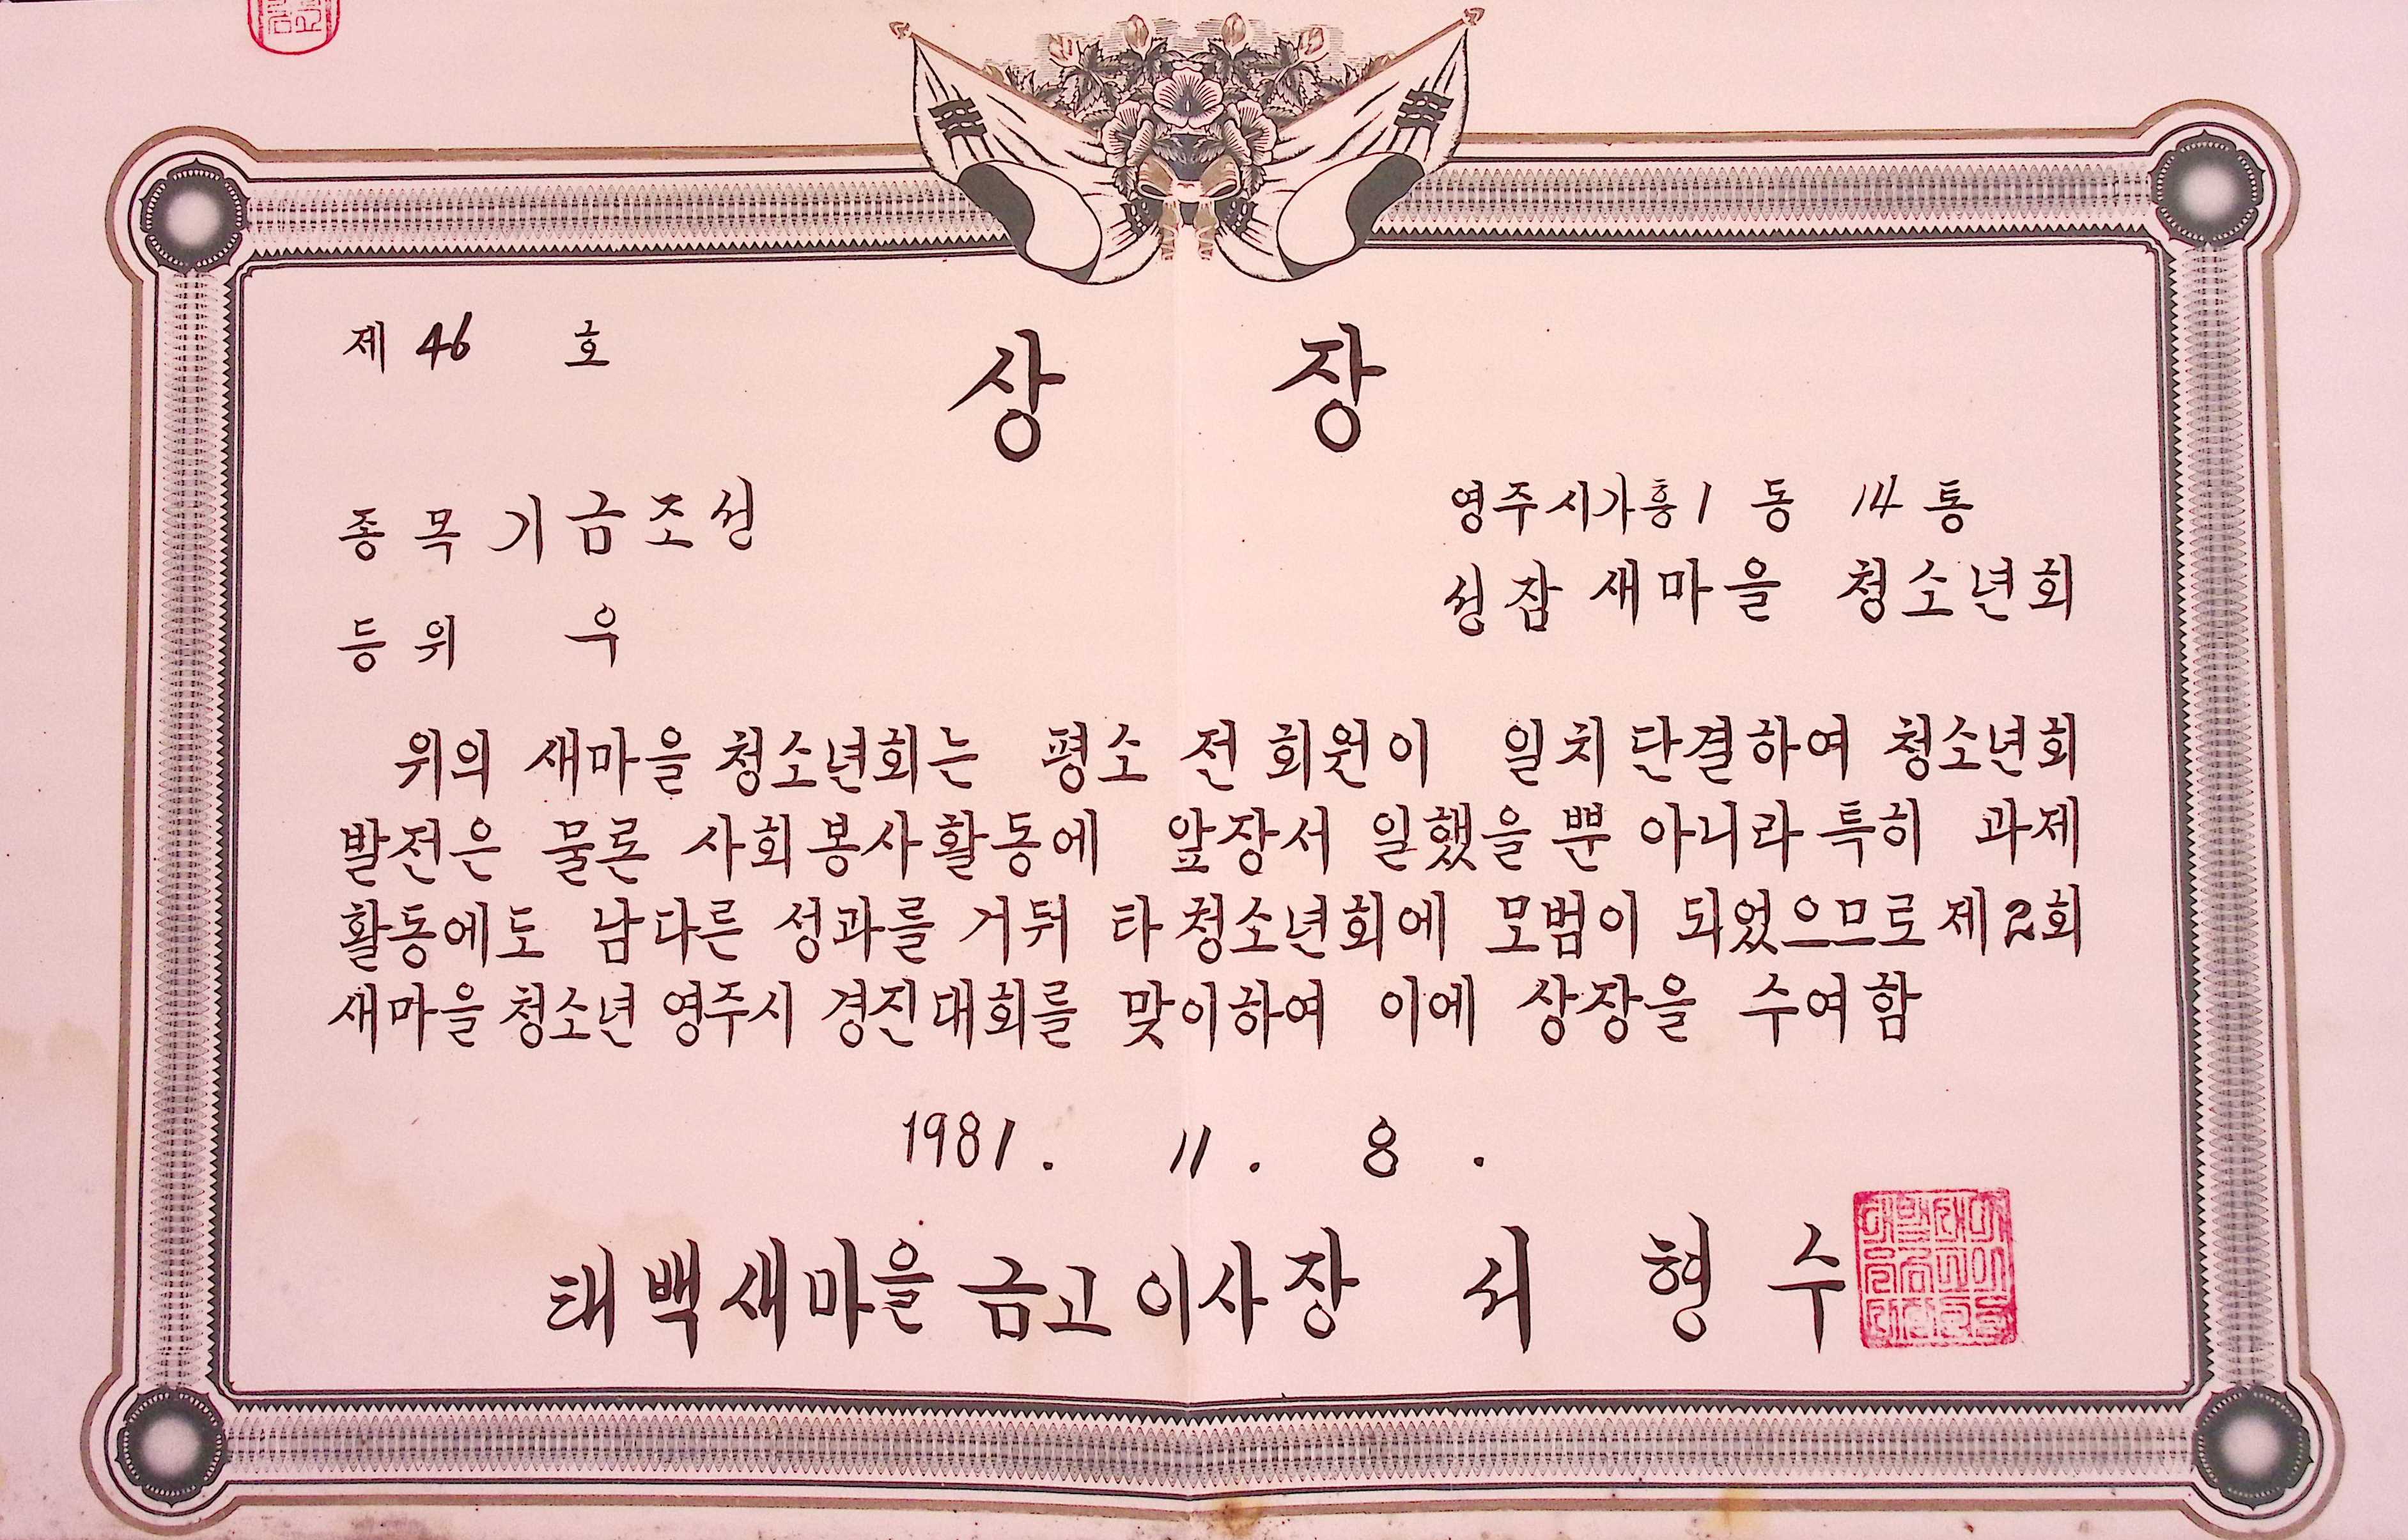 제 46 호
상 장
종 목 기금조성
영주시가흥1 동 14 통
성잠 새마을 청소년회
등 위 우
위의 새마을 청소년회는 평소 전 회원이 일치단결하여 청소년회
발전은 물론 사회봉사활동에 앞장서 일했을 뿐 아니라 특히 과제
활동에도 남다른 성과를 거둬 타 청소년회에 모범이 되었으므로 제2회
새마을 청소년 영주시 경진대회를 맞이하여 이에 상장을 수여함
1981. 11. 8.
태백새마을금고이사장 서 형 수